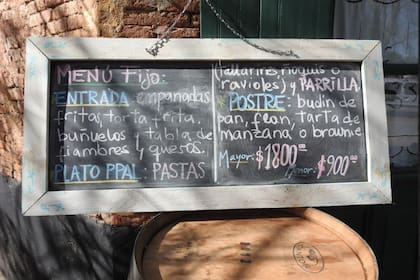 MENÚ Fijo:
ENTRADA empanadas
fritas, torta frita,
buñuelos y tabla de
fiambres y quesos.
PLATO PPAL: PASTAS
(Tallarines, Ñoquis o
ravioles) y PARRILLA
*POSTRE: budin de
pan, flan, tarta de
manzana o brownie
Mayor: $1800 Menor: $900